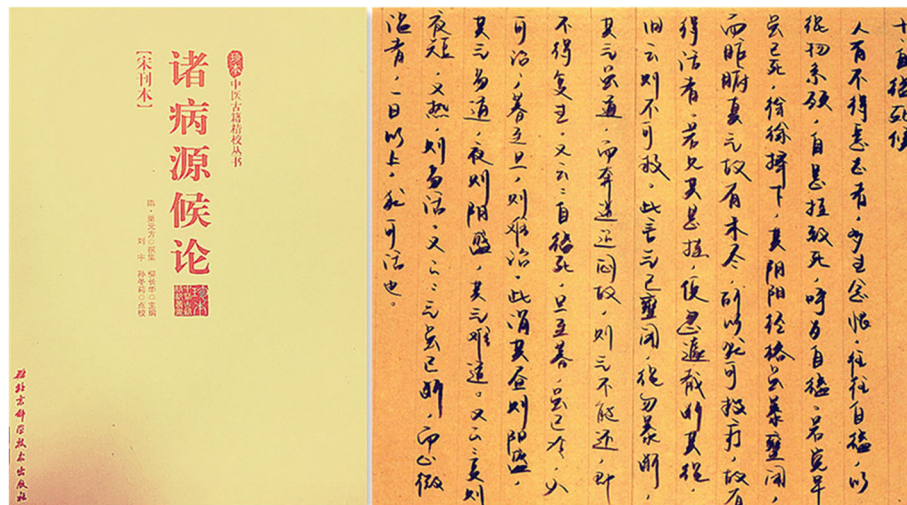 珍本中医古籍精校丛书
诸病源候论
【宋刊本】
隋·巢元方◎撰集 柳长华◎主编
刘宇 孙冬莉◎点校
北京科学技术出版社
十自缢死候
人有不得意志者，多生忿恨，往往自缢，以
绳物系颈，自悬挂致死，呼为自缢。若觉早
虽已死，徐徐捧下，其阴阳经络虽暴壅闭，
而脏腑真气故有未尽，所以犹可救疗，故有
得活者。若见其悬挂，便忽遽截断其绳，
旧云则不可救。此言气已壅闭，绳忽暴断，
其气虽通，而奔迸运闷故，则气不能还，即
不得复生。又云：自缢死，旦至暮，虽已冷，必
可治，暮至旦，则难治。此谓其昼则阳盛，
其气易通，夜则阴盛，其气难通。又云：夏则
夜短，又热，则易活。又云：气虽已断，而心微
温者，一日以上，犹可活也。